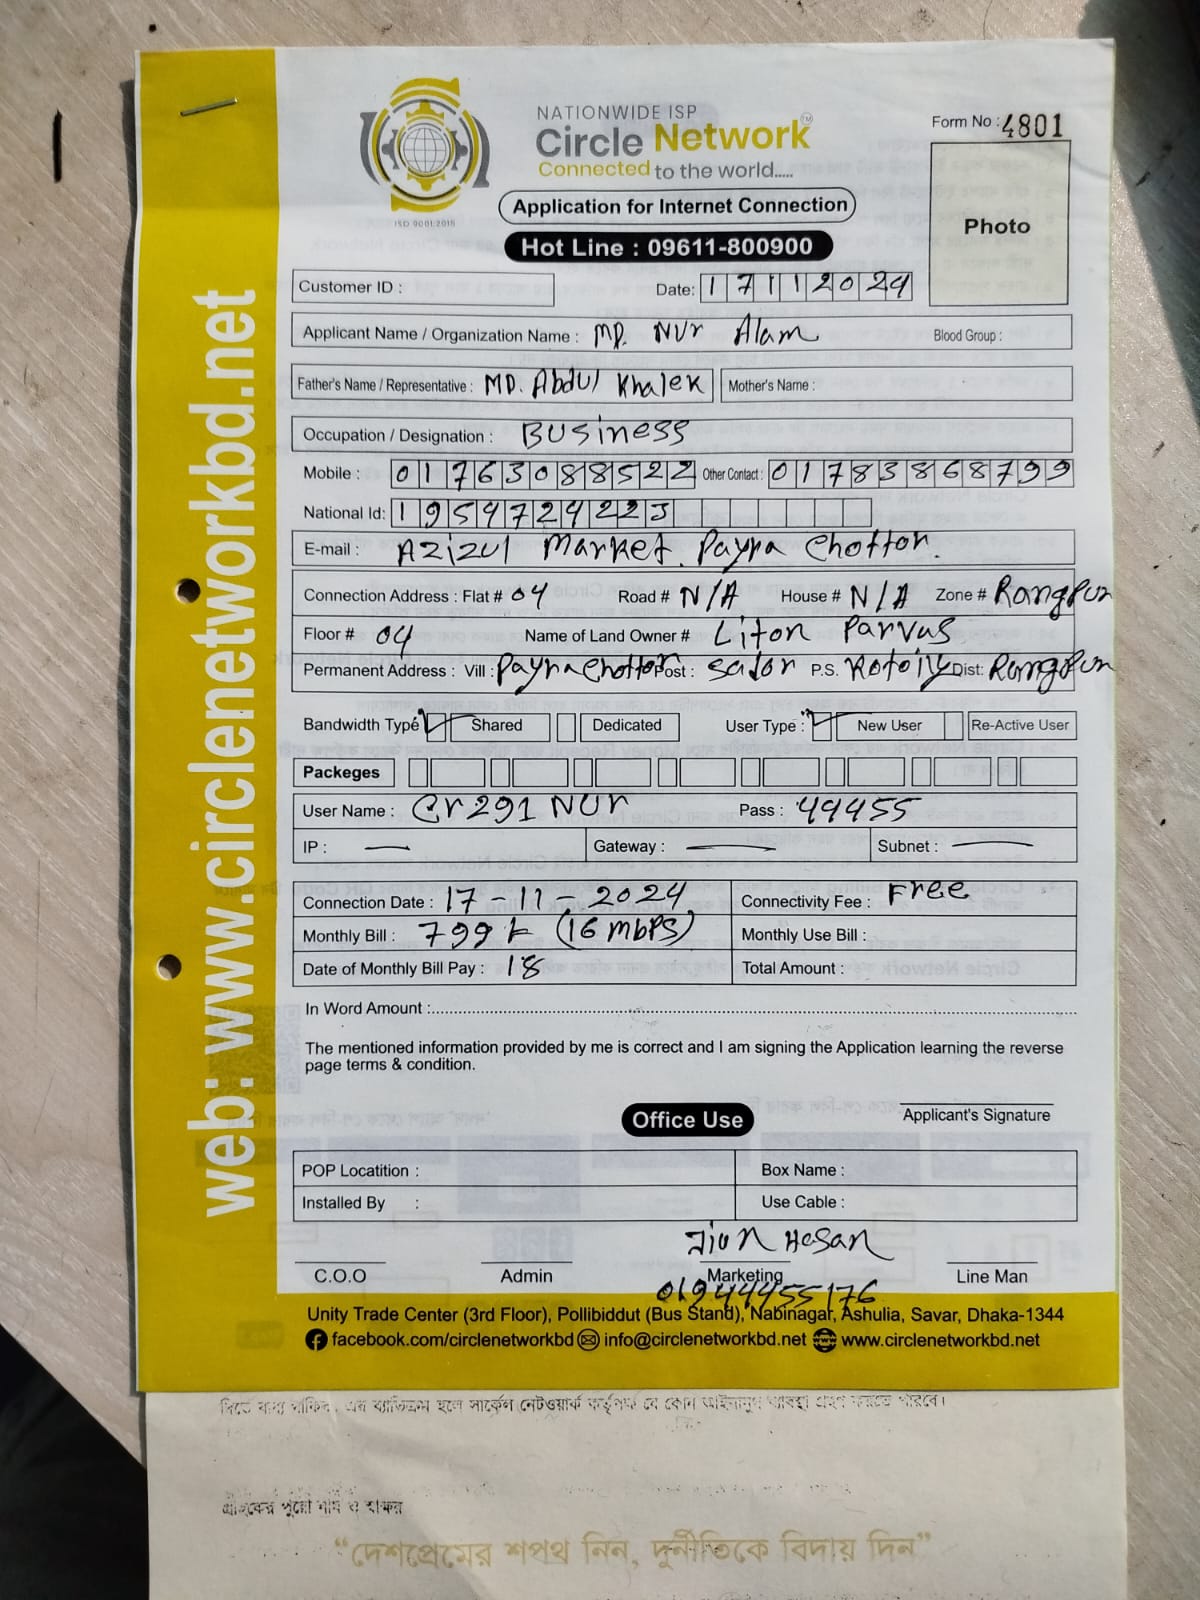 NATIONWIDE ISP
Circle Network™
Connected to the world.....
ISO 9001:2015
Form No : 4801
Photo
Application for Internet Connection
Hot Line : 09611-800900
Customer ID :
Date: 17112024
Applicant Name / Organization Name : MD. NUr Alam Blood Group :
Father's Name / Representative : MD. Abdul Khalek Mother's Name :
Occupation / Designation : BUSiness
Mobile : 01763088522 Other Contact : 01783868799
National Id: 1959724223
E-mail : Azizul Market. Payra Chottor.
Connection Address : Flat # 04 Road # N/A House # N/A Zone # Rangpur
Floor # 04 Name of Land Owner # Liton Parvas
Permanent Address : Vill : Payra Chottor Post : Sador P.S. Kotoily Dist: Rangpur
Bandwidth Type : Shared Dedicated User Type : New User Re-Active User
Packeges
User Name : Cr291 NUr Pass : 49455
IP : — Gateway : — Subnet : —
Connection Date : 17-11-2024 Connectivity Fee : Free
Monthly Bill : 799 (16 mbps) Monthly Use Bill :
Date of Monthly Bill Pay : 18 Total Amount :
In Word Amount :
The mentioned information provided by me is correct and I am signing the Application learning the reverse
page terms & condition.
Applicant's Signature
Office Use
POP Locatition : Box Name :
Installed By : Use Cable :
Hasan
C.O.O Admin Marketing Line Man
01944455176
Unity Trade Center (3rd Floor), Pollibiddut (Bus Stand), Nabinagar, Ashulia, Savar, Dhaka-1344
facebook.com/circlenetworkbd info@circlenetworkbd.net www.circlenetworkbd.net
web: www.circlenetworkbd.net
দিতে বাধ্য থাকিব, এর ব্যতিক্রম হলে সার্কেল নেটওয়ার্ক কর্তৃপক্ষ যে কোন আইনানুগ ব্যবস্থা গ্রহণ করতে পারবে।
গ্রাহকের পুরো নাম ও স্বাক্ষর
“দেশপ্রেমের শপথ নিন, দুর্নীতিকে বিদায় দিন”